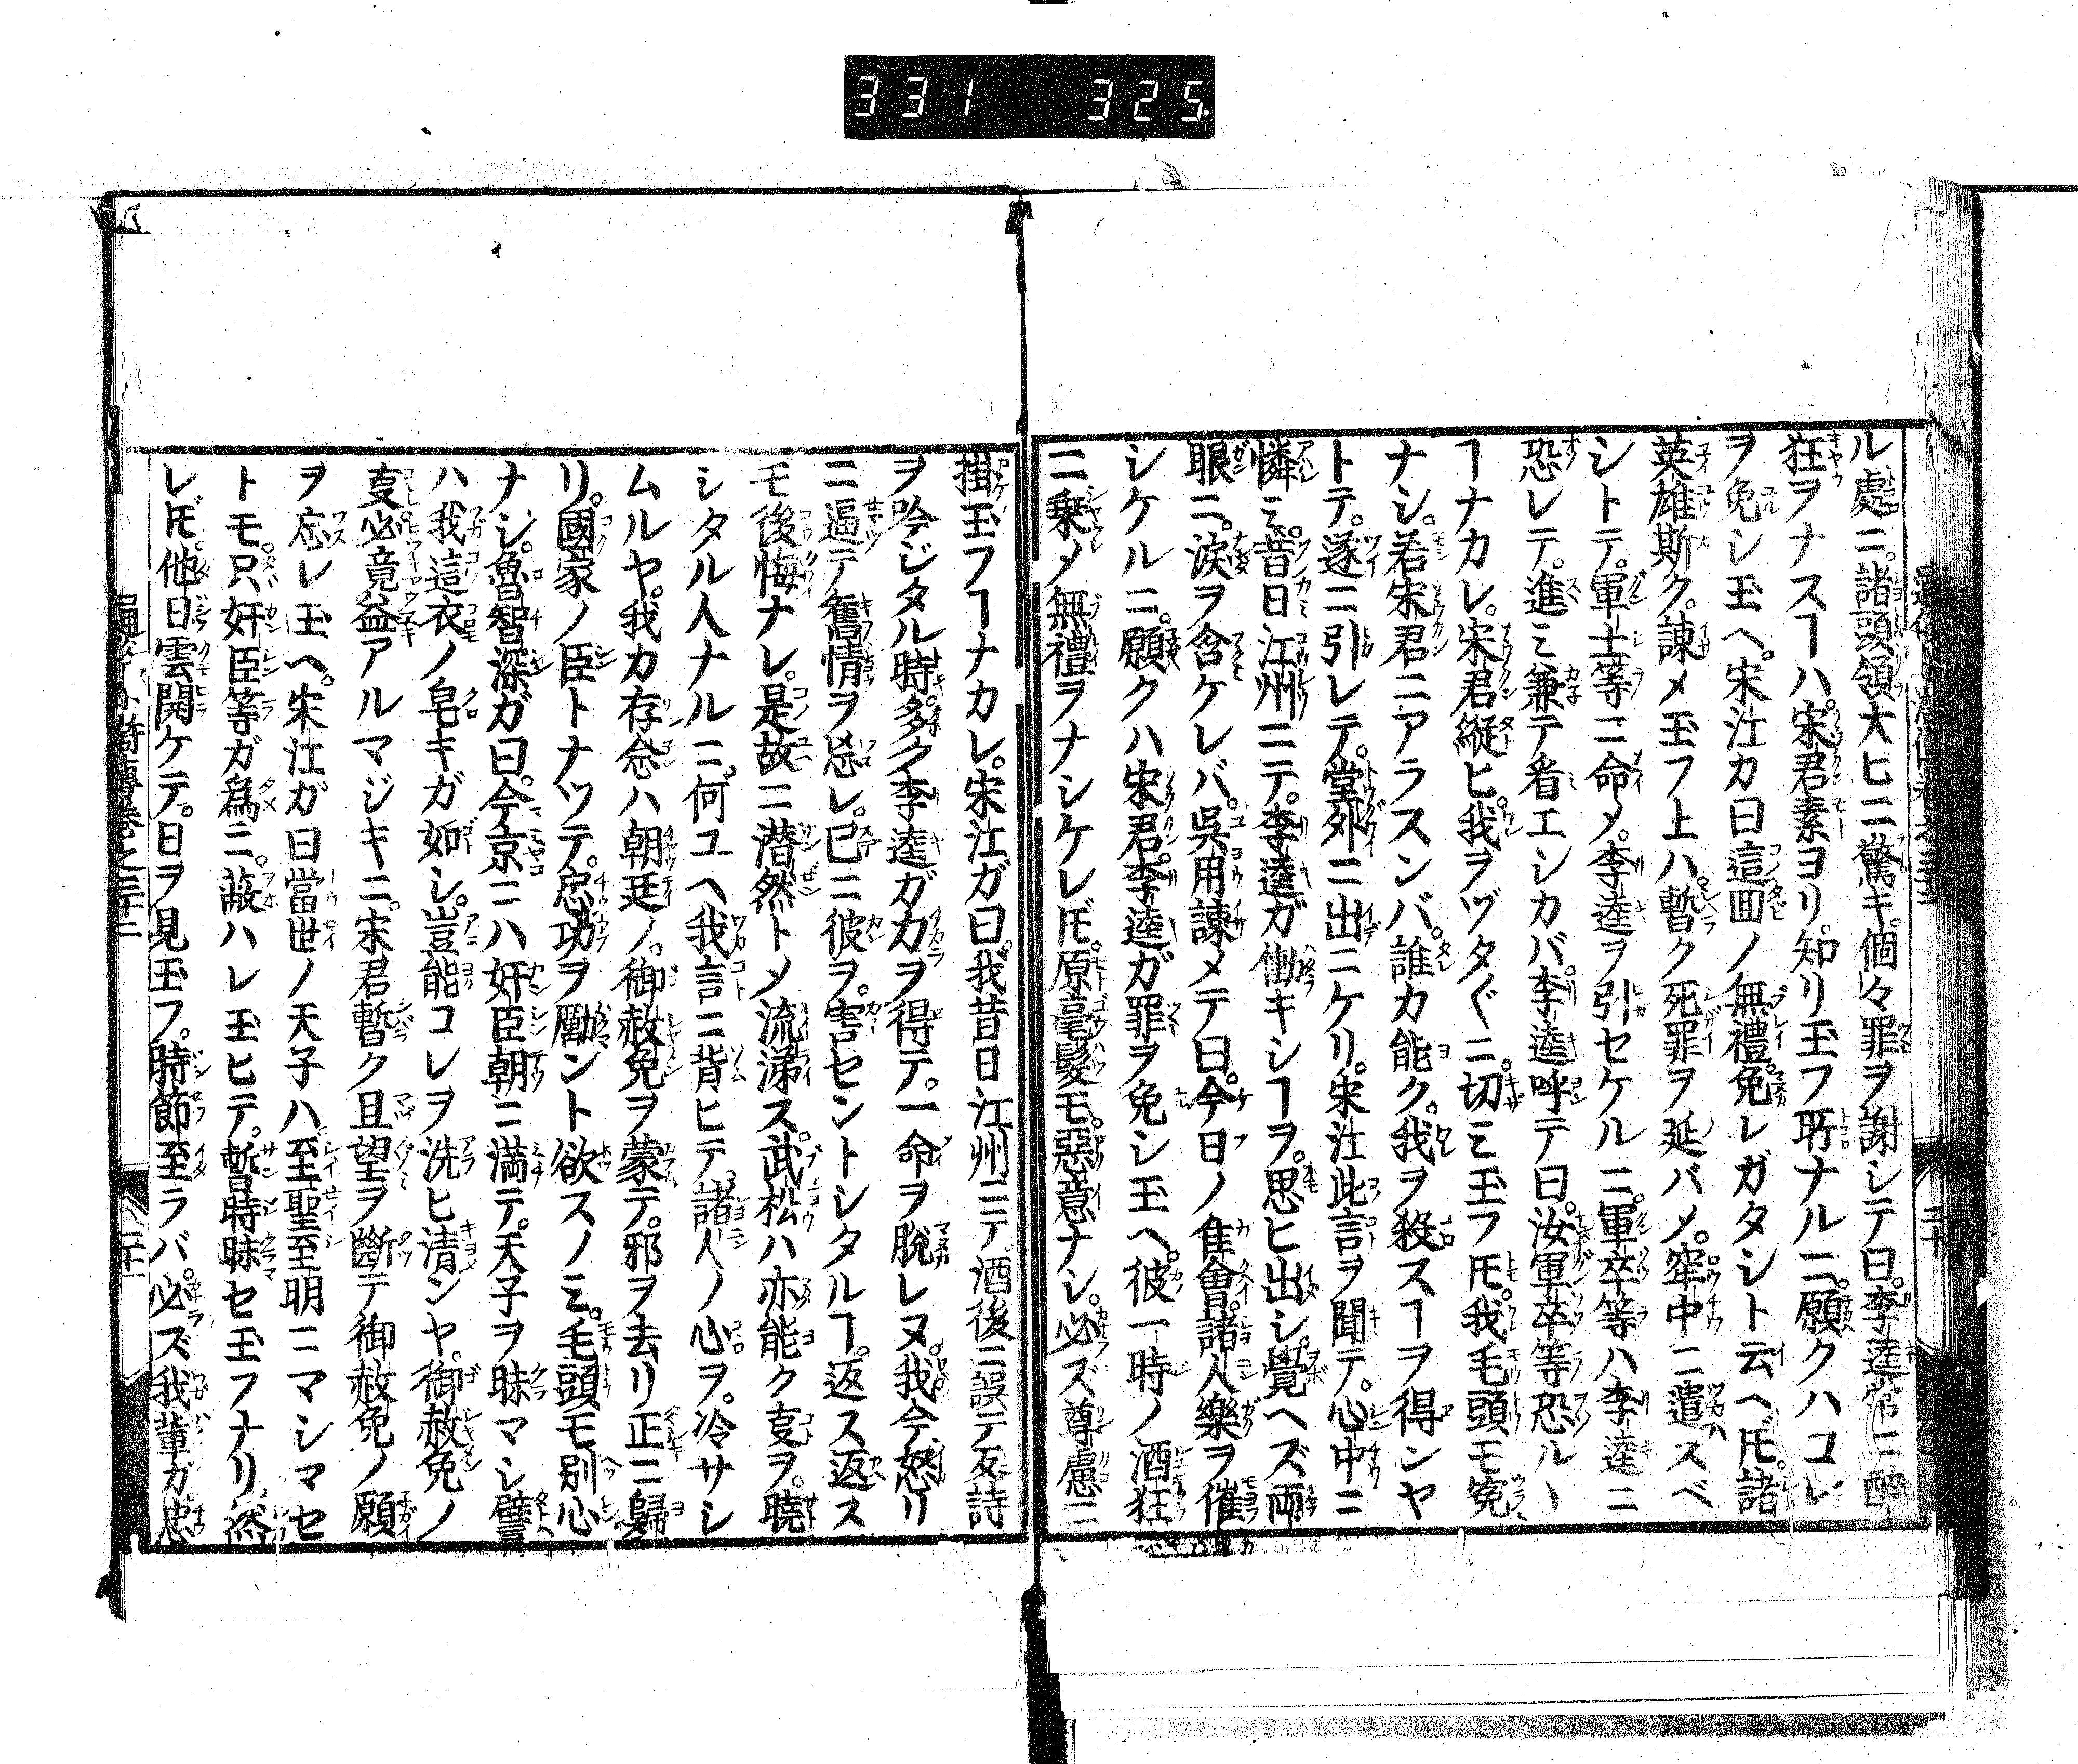 331 325
ル處ニ。諸頭領大ヒニ驚キ。個々罪ヲ謝シテ曰。李逵常ニ醉
狂ヲナスヿハ。宋君素ヨリ。知リ玉フ所ナルニ。願クハコレ
ヲ免シ玉ヘ。宋江カ曰這回ノ無禮。免レガタシト云ヘ𪜈。諸
英雄斯ク。諫メ玉フ上ハ。暫ク死罪ヲ延バメ。牢中ニ遣スベ
シトテ。軍士等ニ命メ。李逵ヲ引セケルニ。軍卒等ハ李逵ニ
恐レテ。進ミ兼テ看エシカバ。李逵呼テ曰。汝軍卒等恐ルヽ
ヿナカレ。宋君縦ヒ。我ヲヅタ〲ニ。切ミ玉フ𪜈。我毛頭モ寃
ナシ。若宋君ニアラスンバ。誰カ能ク。我ヲ殺スヿヲ得ンヤ
トテ。遂ニ引レテ。堂外ニ出ニケリ。宋江此言ヲ聞テ。心中ニ
憐ミ。昔日江州ニテ。李逵ガ働キシヿヲ。思ヒ出シ。覺ヘズ両
眼ニ。涙ヲ含ケレバ。呉用諫メテ曰。今日ノ隹會。諸人樂ヲ催
シケルニ。願クハ宋君。李逵ガ罪ヲ免シ玉ヘ。彼一時ノ酒狂
ニ乗メ無禮ヲナシケレ𪜈。原毫髮モ。惡意ナシ。必ズ尊慮ニ
掛玉フヿナカレ。宋江ガ曰。我昔日江州ニテ酒後ニ誤テ反詩
ヲ吟ジタル時。多ク李逵ガ力ヲ得テ。一命ヲ脱レヌ。我今怒リ
ニ逼テ舊情ヲ忘レ。已ニ彼ヲ。害セントシタルヿ。返ス返ス
モ後悔ナレ。是故ニ潜然トメ流涕ス。武松ハ亦能ク㕝ヲ。曉
シタル人ナルニ。何ユヘ我言ニ背ヒテ。諸人ノ心ヲ。冷サシ
ムルヤ。我カ存念ハ朝廷ノ。御赦免ヲ蒙テ。邪ヲ去リ正ニ歸
リ。國家ノ臣トナツテ。忠功ヲ勵ント欲スノミ。毛頭モ別心
ナシ。魯智深ガ曰。今京ニハ奸臣朝ニ満テ。天子ヲ昧マシ譬
ハ我這衣ノ皂キガ如シ。豈能コレヲ洗ヒ清ンヤ。御赦免ノ
㕝必竟益アルマジキニ。宋君暫ク且望ヲ斷テ御赦免ノ願
ヲ忘レ玉ヘ。宋江ガ曰當世ノ天子ハ至聖至明ニマシマセ
トモ。只奸臣等ガ爲ニ。蔽ハレ玉ヒテ。暫時昧セ玉フナリ。然
レ𪜈。他日雲開ケテ。日ヲ見玉フ。時節至ラバ。必ズ我輩ガ忠